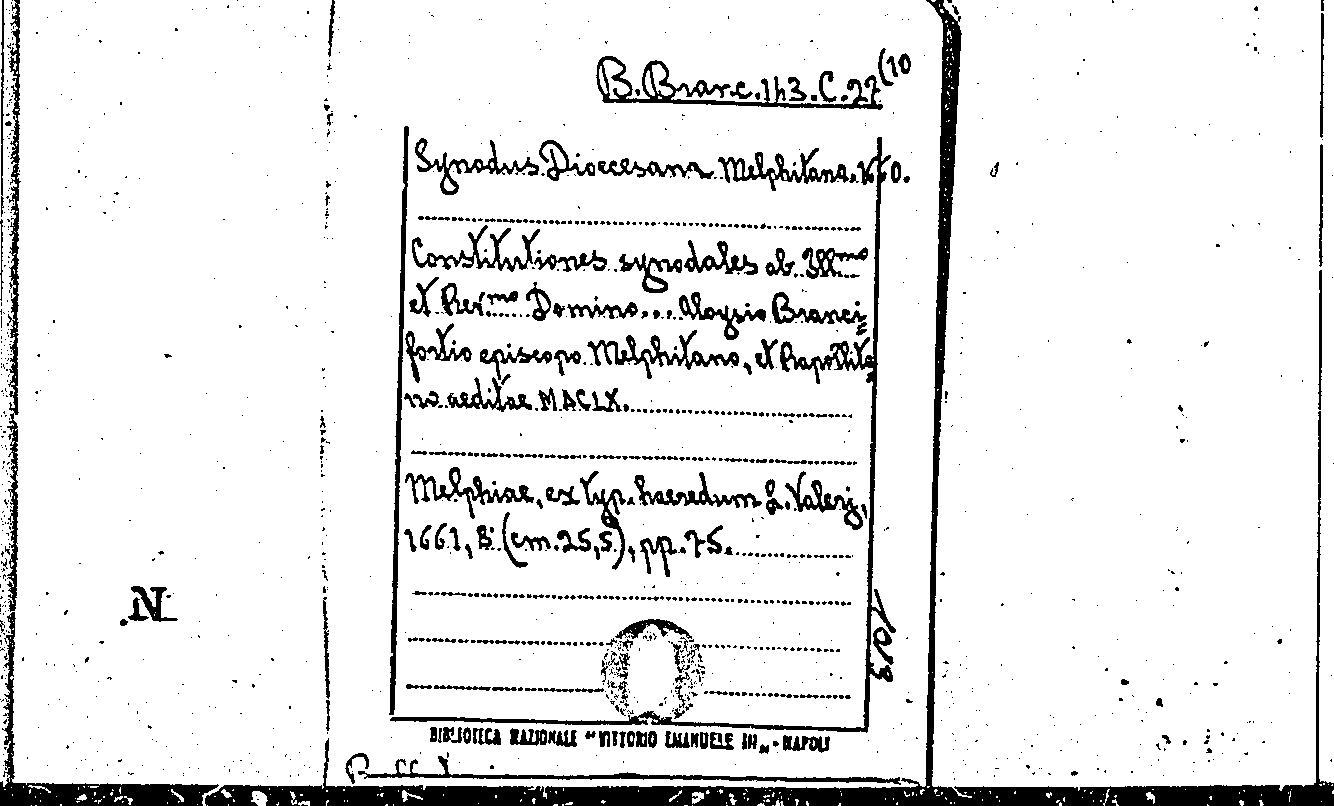 B. Branc. 143. C. 27 (10
Synodus Dioecesana Melphitana. 1660.
Constitutiones synodales ab Ill.mo
et Rev.mo Domino... Aloysio Branci=
fortio episcopo Melphitano, et Rapollita=
no aeditae MDCLX.
Melphiae, ex typ. haeredum L. Valerij,
1661, 8° (cm. 25,5), pp. 75.
N
1013
BIBLIOTECA NAZIONALE "VITTORIO EMANUELE III" - NAPOLI